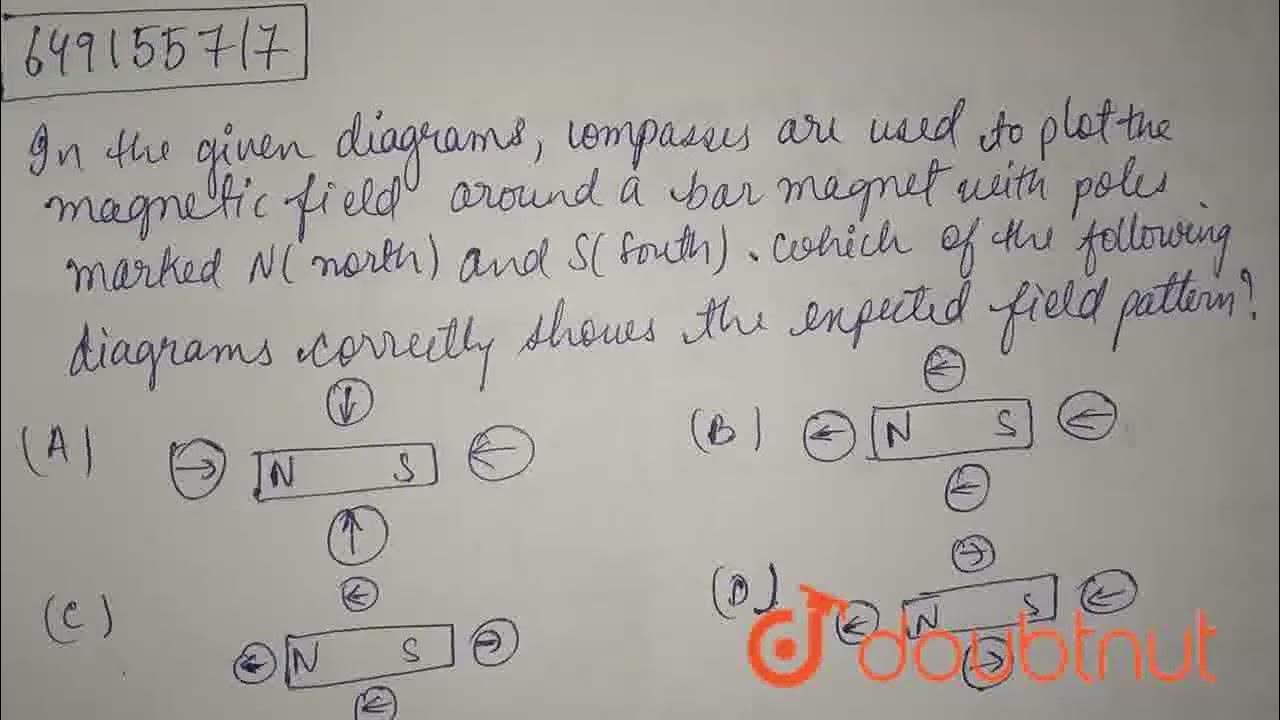 649155717
In the given diagrams, compasses are used to plot the
magnetic field around a bar magnet with poles
marked N( north) and S( south) . which of the following
diagrams correctly shows the expected field pattern?
(A)
↓
→ N S ←
↑
(B)
←
← N S ←
←
(C)
←
← N S →
←
(D)
→
← N S ←
→
doubtnut